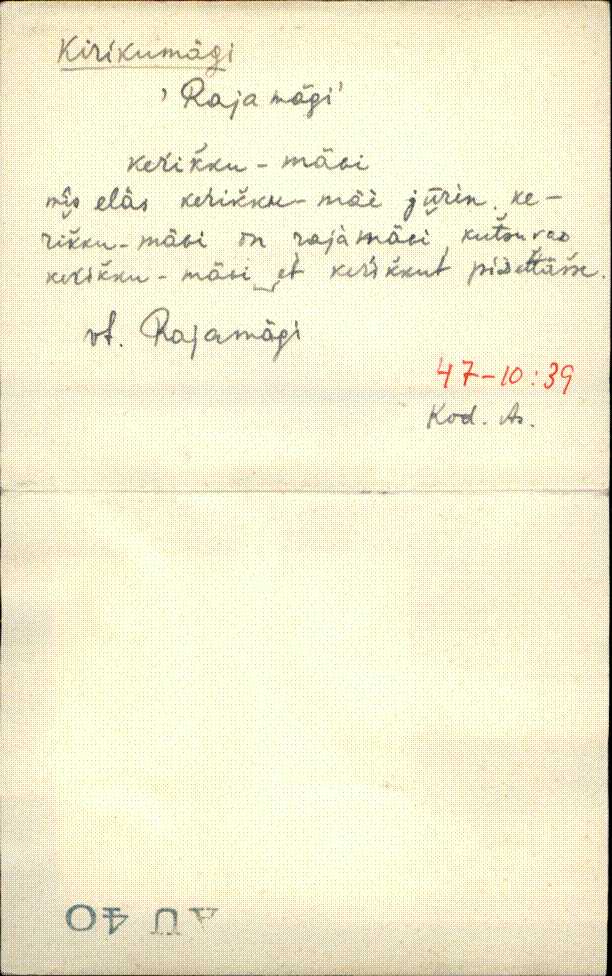 Kirikumägi
'Rajamägi'
kerikku-mäGi
mis eläs kerikku-mäe jūrin. ke-
rikku-mäGi on rajamäGi, kutsuvaD
kerikku-mäGi, et kerikkut piDettässe.
vt. Rajamägi
47-10:39
Kod. As.